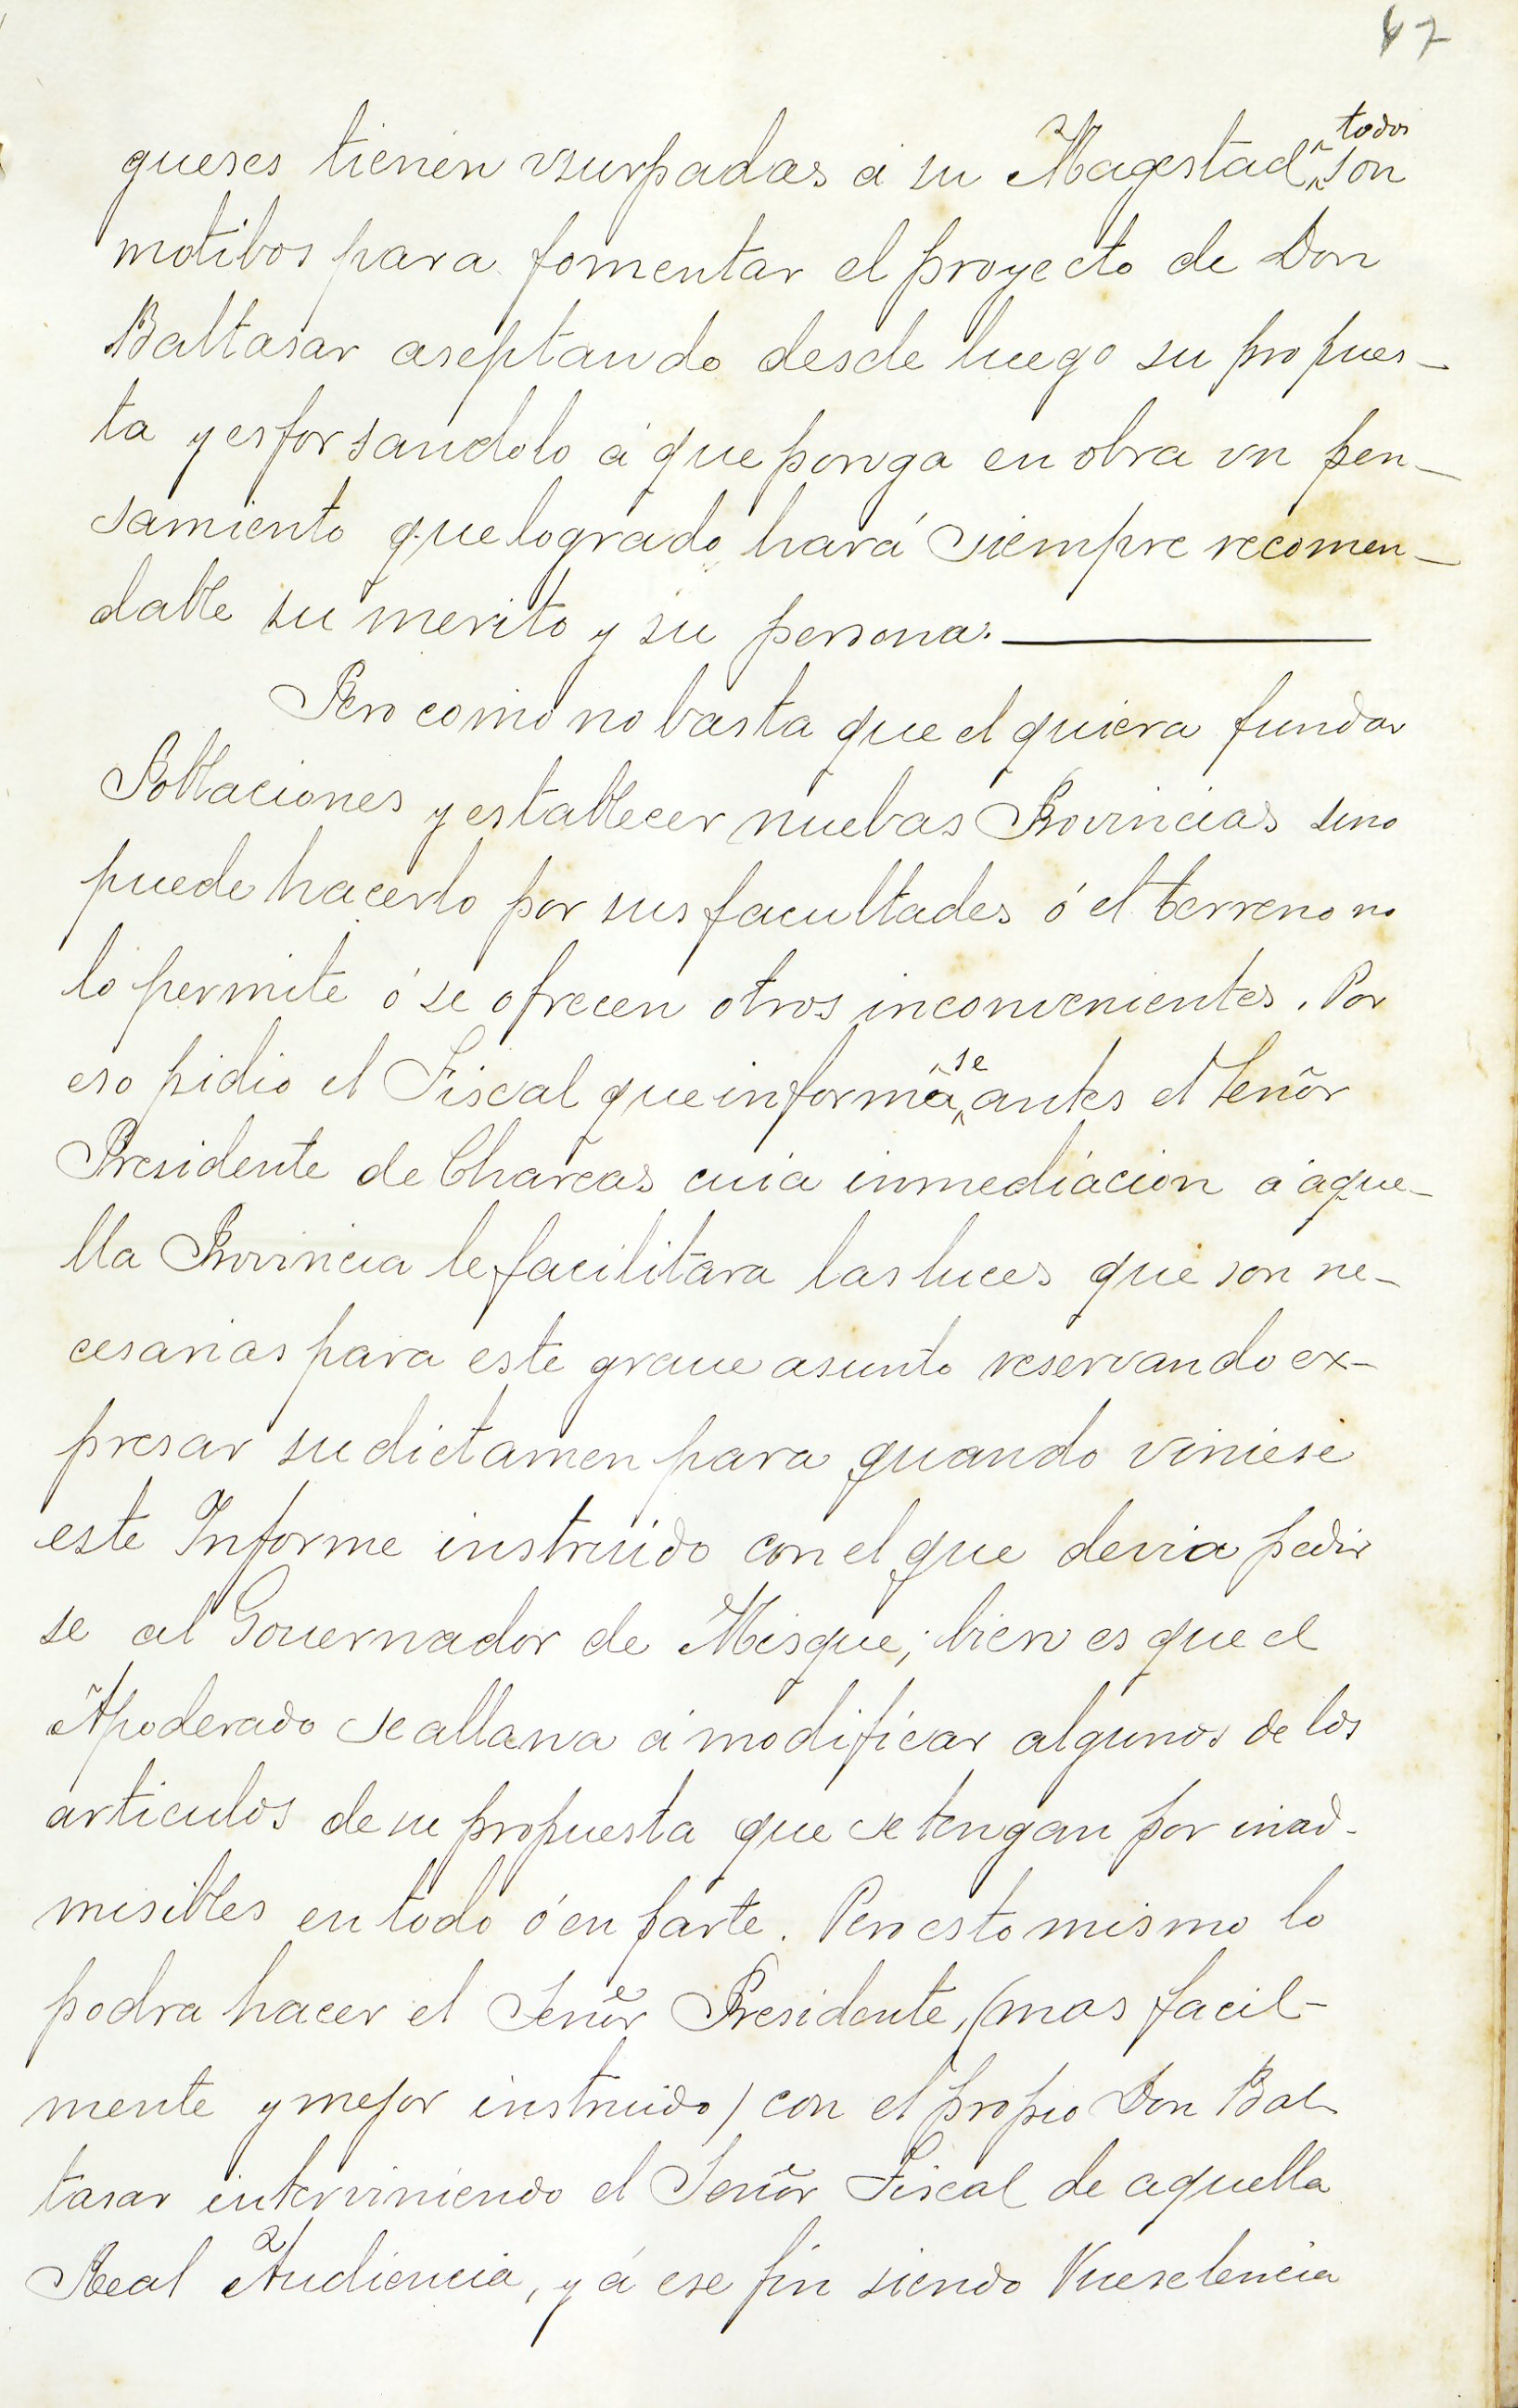 47
gueses tienen vsurpadas á su Magestad, todos son
motibos para fomentar el proyecto de Don
Baltasar aseptando desde luego su propues-
ta y esforsandolo á que ponga en obra vn pen-
samiento que logrado hará siempre recomen-
dable su merito y su persona.
Pero como no basta que el quiera fundar
Poblaciones y establecer nuebas Provincias sino
puede hacerlo por sus facultades ó el terreno no
lo permite ó se ofrecen otros inconvenientes. Por
eso pidio el Fiscal que informase antes el Señor
Presidente de Charcas cuia inmediacion á aque-
lla Provincia le facilitara las luces que son ne-
cesarias para este graue asunto reservando ex-
presar su dictamen para quando viniese
este Informe instruido con el que devia pedir
se al Gouernador de Misque; bien es que el
Apoderado se allana á modificar algunos de los
articulos de su propuesta que se tengan por inad-
misibles en todo ó en parte. Pero esto mismo lo
podra hacer el Señor Presidente, (mas facil-
mente y mejor instruido) con el propio Don Bal-
tasar interviniendo el Señor Fiscal de aquella
Real Audiencia, y á ese fin siendo Vuexelencia